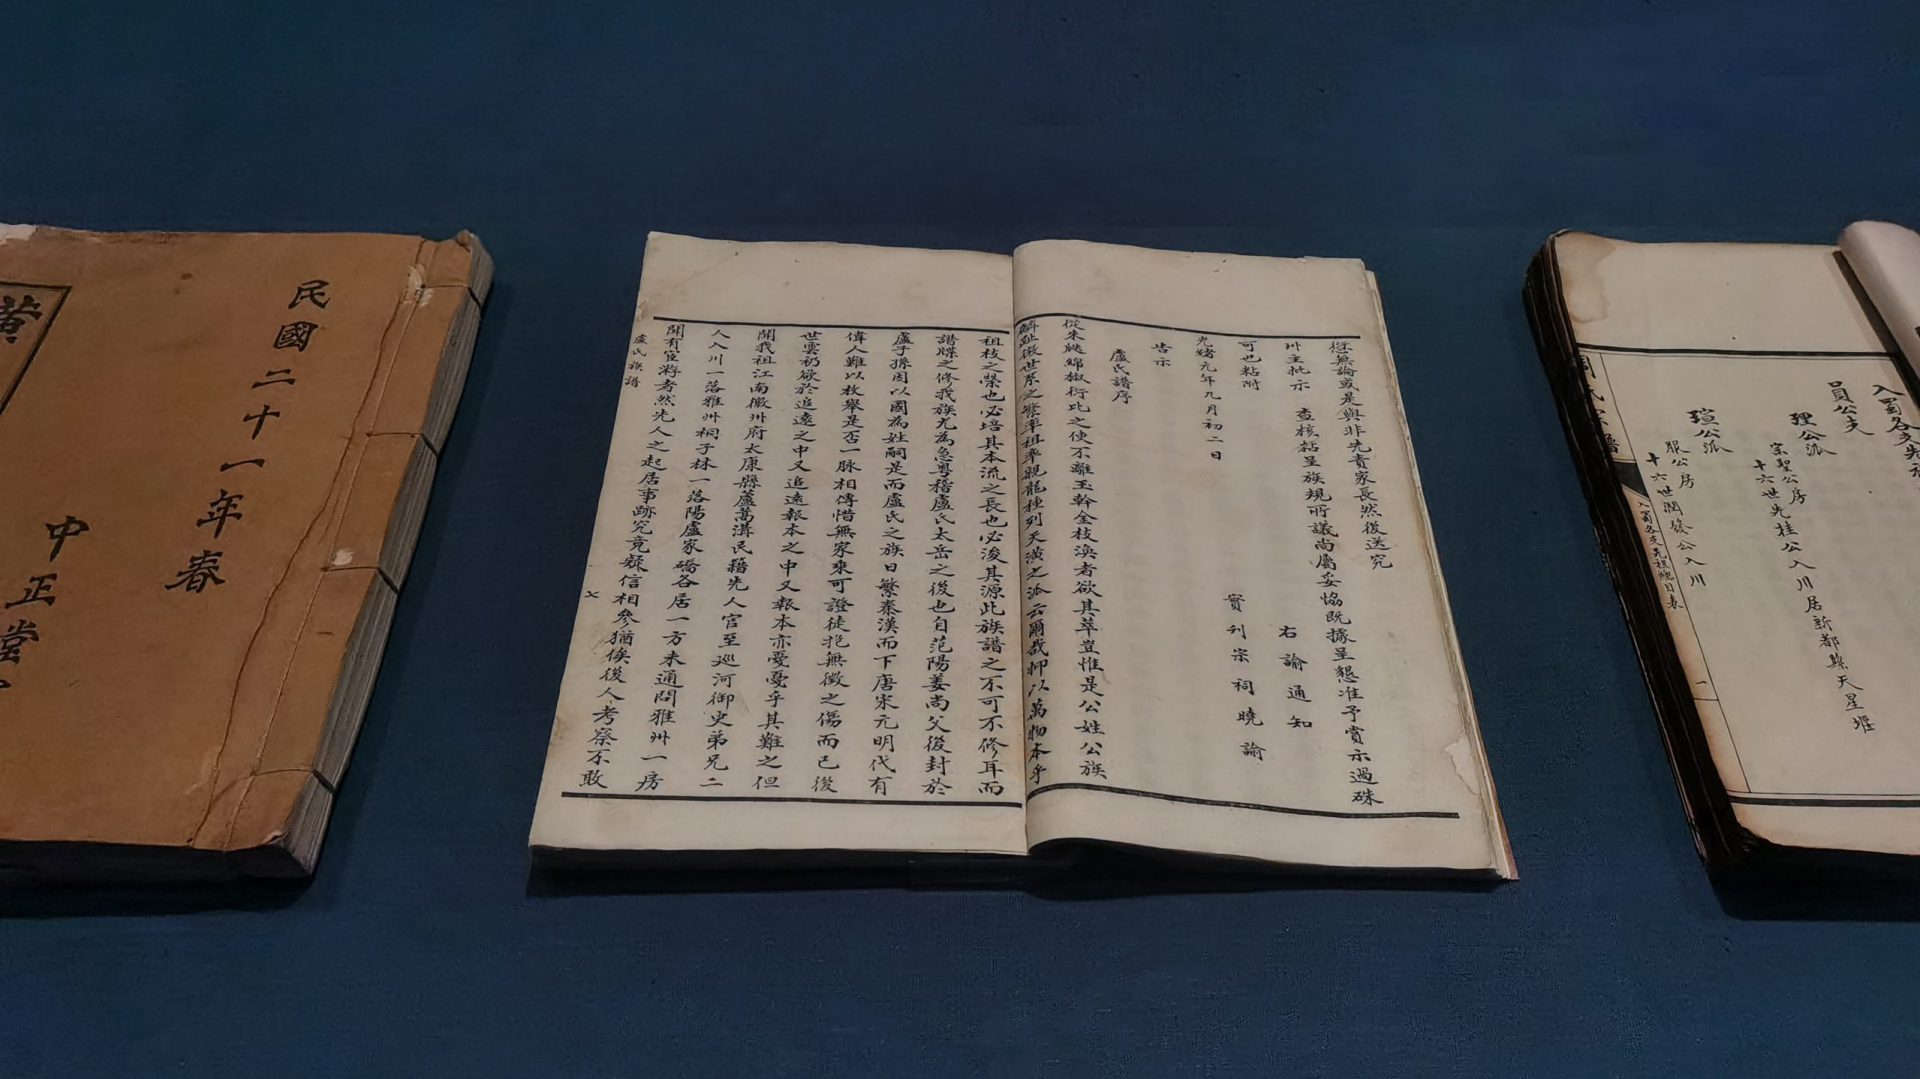 民國二十一年春
中正堂
黃
從無論或是與非先責家長然後送究
州主批示 查核黏呈族規所議尚屬妥協既據呈懇准予賞示過硃
可也粘附
右諭通知
實刊宗祠曉諭
光緒元年九月初二日
告示
盧氏譜序
從來瓞綿椒衍比之使不離玉幹金枝渙者欲其萃豈惟是公姓公族
麟趾徵世系之繁潭祖率親龍種列天潢之派云爾哉抑以萬物本乎
祖枝之榮也必培其本流之長也必浚其源此族譜之不可不修耳而
譜牒之修我族尤為急粵稽盧氏太岳之後也自范陽姜尚父後封於
盧子孫因以國為姓嗣是而盧氏之族日繁秦漢而下唐宋元明代有
偉人難以枚舉是否一脉相傳惜無家乘可證徒抱無徵之傷而已後
世雲礽欲於追遠之中又追遠報本之中又報本亦憂憂乎其難之但
聞我祖江南徽州府太康縣蘆蒿溝民籍先人官至巡河御史弟兄二
人入川一落雅州桐子林一落陽盧家礄各居一方未通問雅州一房
聞有宦游者然先人之起居事跡究竟疑信相參猶俟後人考察不敢
盧氏族譜
七
入蜀各支先祖
員公支
理公派
宗聖公房
十六世先桂公入川居新都縣天星堰
瑄公派
服公房
十六世潤發公入川
入蜀各支先祖總目表
一